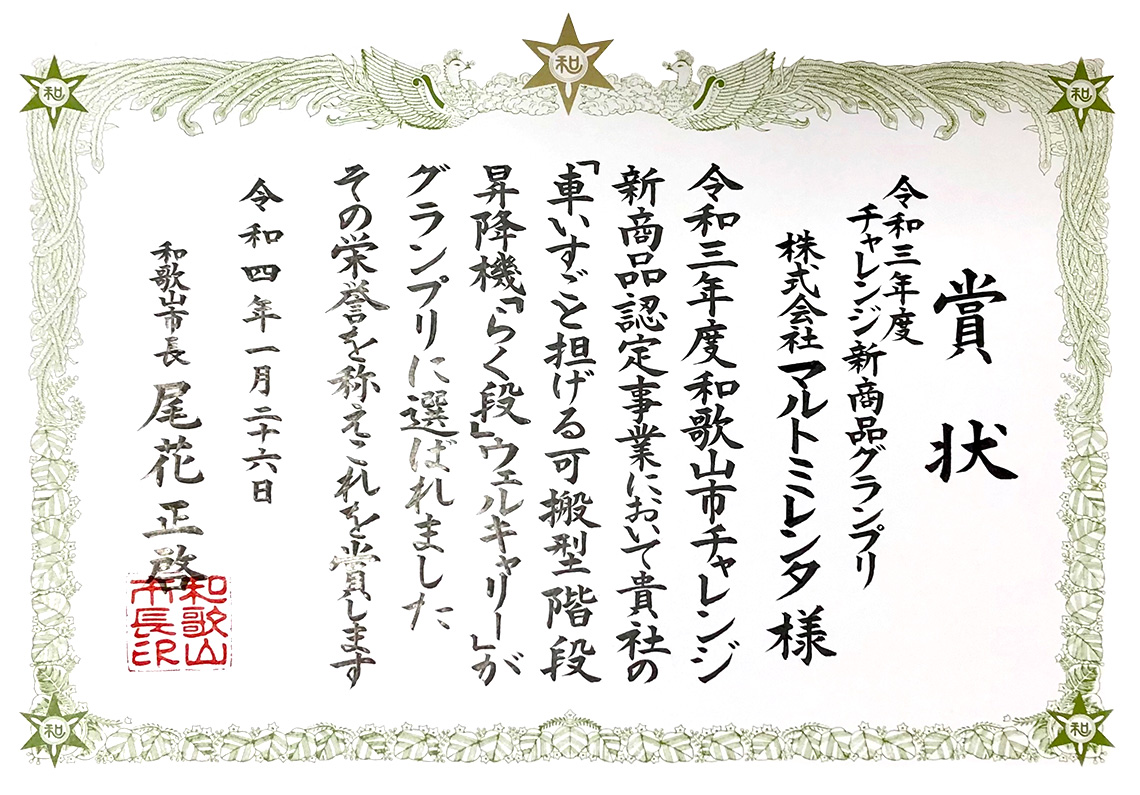 賞状
令和三年度
チャレンジ新商品グランプリ
株式会社マルトミレンタ様
令和三年度和歌山市チャレンジ
新商品認定事業において貴社の
「車いすごと担げる可搬型階段
昇降機「らく段」ウェルキャリー」が
グランプリに選ばれました
その栄誉を称えこれを賞します
令和四年一月二十六日
和歌山市長 尾花正啓
和歌山
市長印
和
和
和
和
和